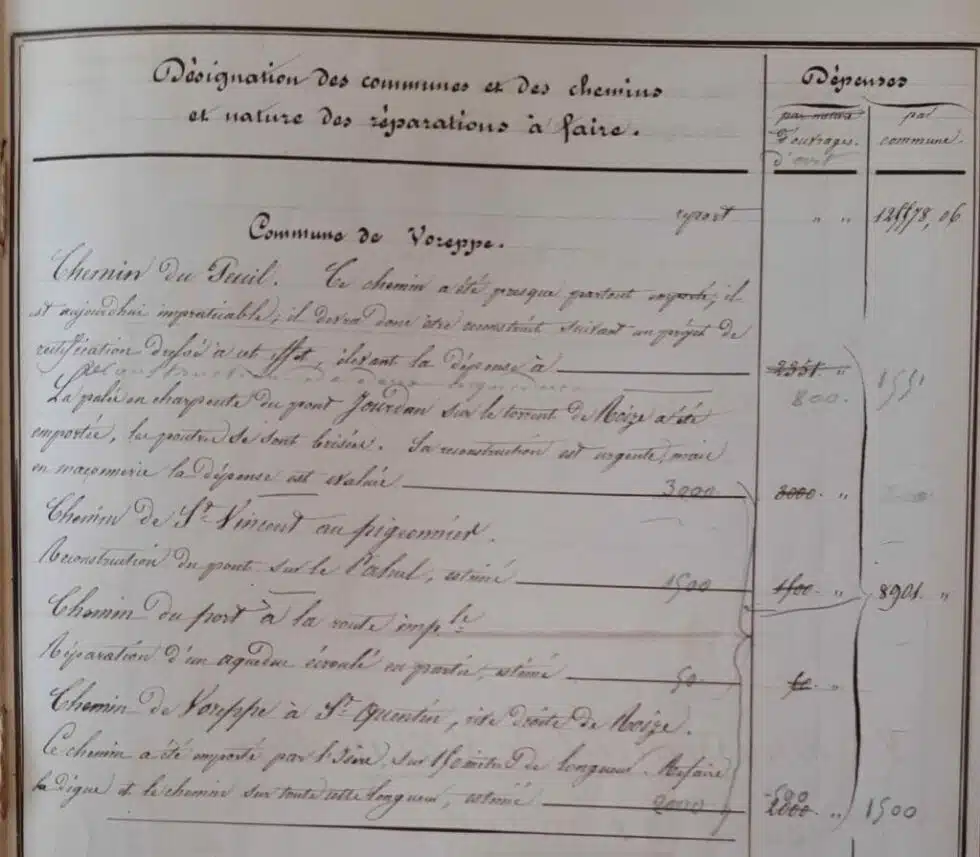 Désignation des communes et des chemins
et nature des réparations à faire.
Dépenses
par nature
d'ouvrages.
d'art
par
commune.
report " " 12558,06
Commune de Voreppe.
Chemin du Peuil. Ce chemin a été presque partout emporté; il
est aujourdhui impraticable; il devra donc être reconstruit suivant un projet de
rectification dressé à cet effet, élevant la dépense à 2351. "
800. 1551
La palée en charpente du pont Jourdan sur le torrent de Roize a été
emportée, les poutres se sont brisées. Sa reconstruction est urgente, mais
en maçonnerie la dépense est évaluée 3000 3000. "
Chemin de St Vincent au pigeonnier.
Reconstruction du pont sur le Palud, estimé 1500 1500. " 8901. "
Chemin du port à la route imple
Réparation d'un aqueduc écroulé en partie, estimé 50 50. "
Chemin de Voreppe à St Quentin, rive droite de Roize.
Ce chemin a été emporté par l'Isère, sur 150 mètres de longueur. Refaire
la digue et le chemin sur toute cette longueur, estimé 2000 500
2000. " 1500